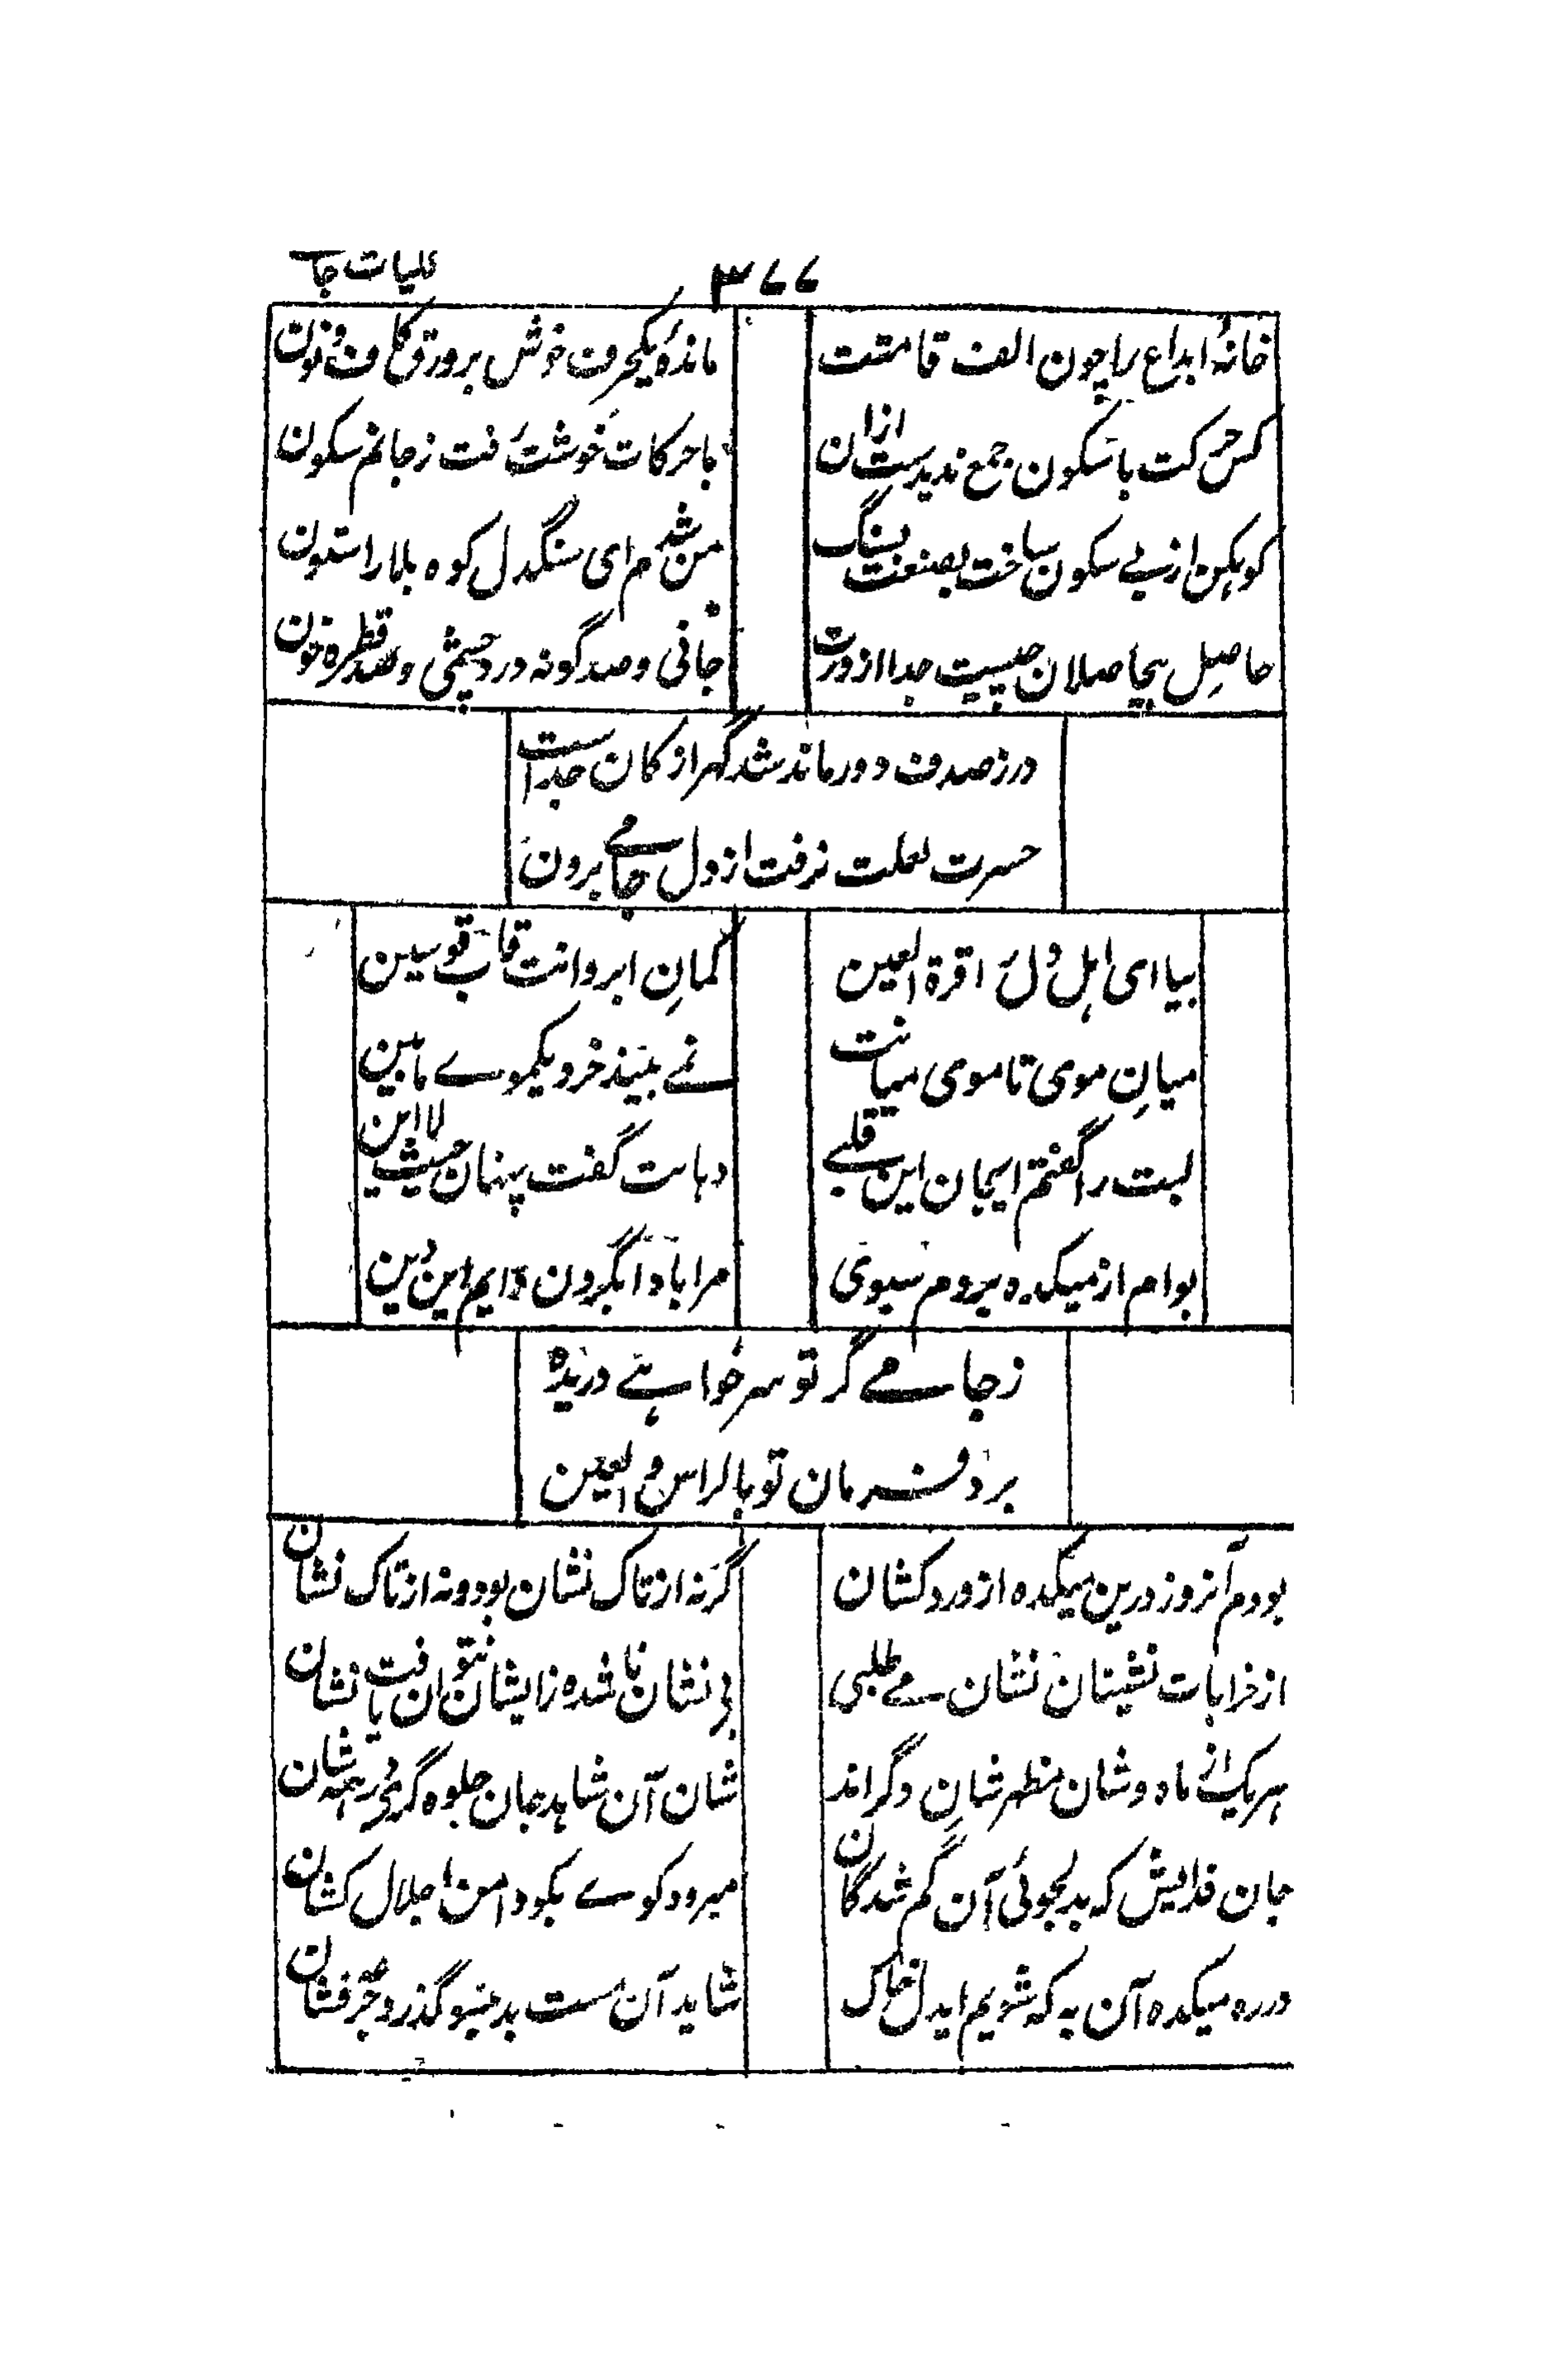 ۳۷۷
کلیات جامے
خانهٔ ابداع را چون الف قامتت
ماندهٔ یکحرف خوش بر ورق کاف و نون
کس حرکت با سکون جمع ندیدست ازان
با حرکات خوشت رفت ز جانم سکون
کوهکن از بے سکون ساخت بصنعت بسنگ
من شدم ای سنگدل کوه بلا را ستون
حاصل بیحاصلان چیست جدا از درت
جانی و صد گونه درد چشمی و صد قطره خون
در ز صدف دور ماند شد گهر از کان جداست
حسرت لعلت نرفت از دل جامے برون
بیا ای اهل دل را قرة العین
کمانِ ابروانت قاب قوسین
میانِ موی تا موی میانت
نمے بیند خرد یکموے مابین
لبت را گفتم ایجان این قلبے
دهانت گفت پنهان لا این
بوام از میکده بردم سبوی
مرا بادا بگردن دایم این دین
ز جامے گر تو سر خواهے دریده
برد فرمان تو بالراس و العین
بودم آنروز درین میکده از دردکشان
گر نه از تاک نشان بود و نه از تاک نشان
از خرابات نشینان نشان مے طلبی
بی نشان نا شده زایشان نتوان یافت نشان
هر یک از ماه وشان مظهر شانِ دگراند
شان آن شاهد جان جلوه گری در همه شان
جان فدایش که بدلجوئی آن گم شدگان
میرود کوے بکو دامن اجلال کشان
در ره میکده آن به که شویم ایدل خاک
شاید آن مست بدینسو گذرد جرعه فشان